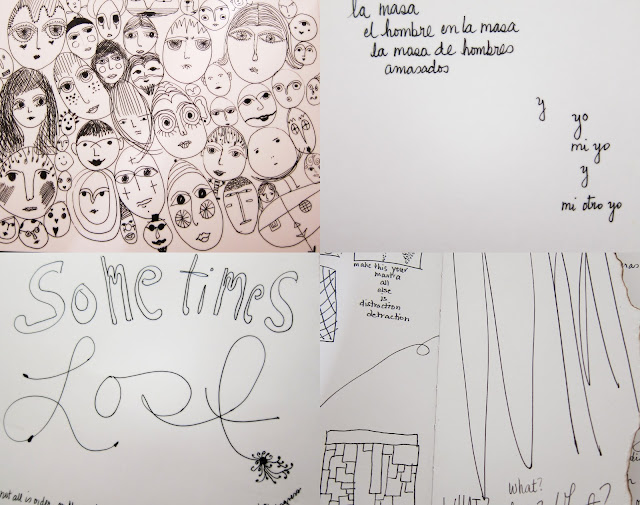 la masa
el hombre en la masa
la masa de hombres
amasados
y
yo
mi yo
y
mi otro yo
sometimes
Lost
make this your
mantra
all
else
is
distraction
detraction
what?
WHAT?